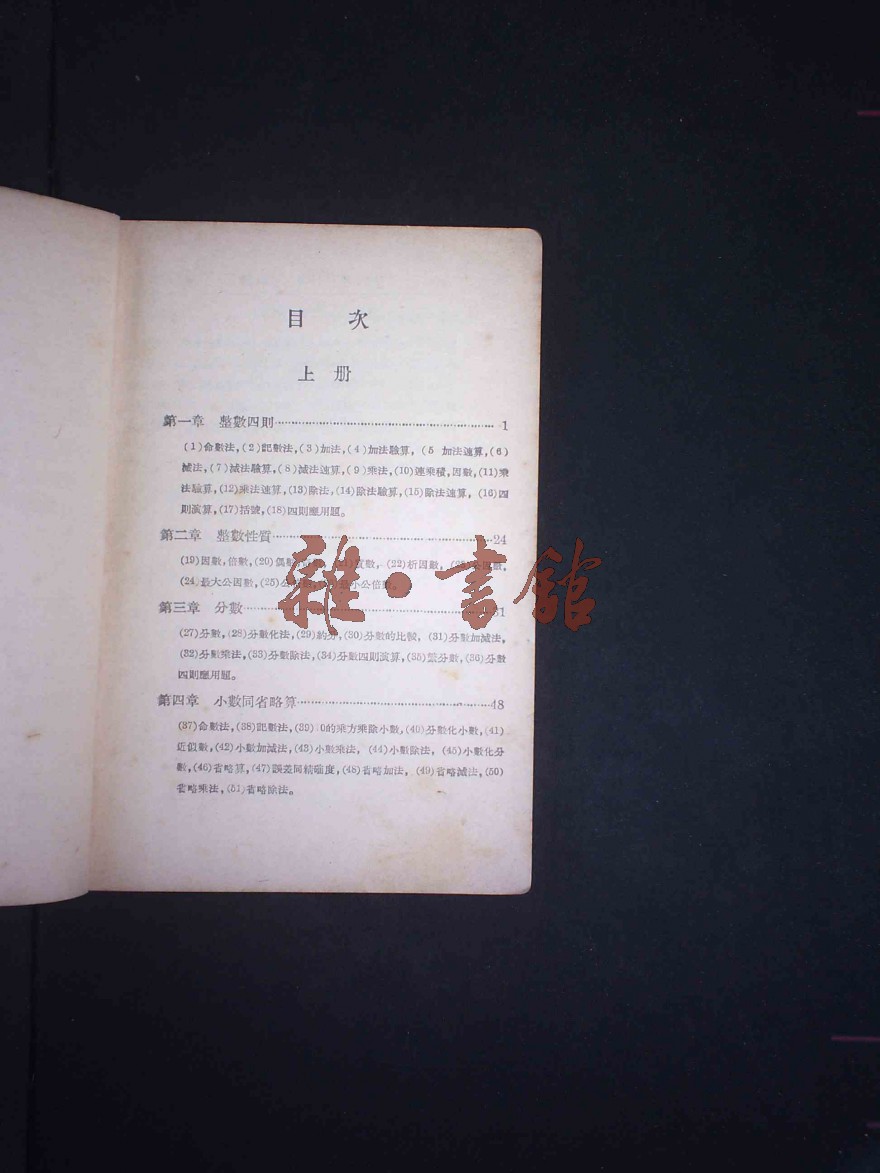 目 次
上 册
第一章 整數四則 1
(1)命數法,(2)記數法,(3)加法,(4)加法驗算, (5 加法速算,(6)
減法,(7)減法驗算,(8)減法速算,(9)乘法,(10)連乘積,因數,(11)乘
法驗算,(12)乘法速算,(13)除法,(14)除法驗算,(15)除法速算, (16)四
則演算,(17)括號,(18)四則應用題。
第二章 整數性質 24
(19)因數,倍數,(20)偶數 數, (22)析因數, 公因數,
(24 最大公因數,(25)公 小公倍數。
第三章 分數 31
(27)分數,(28)分數化法,(29)約分,(30)分數的比較, (31)分數加減法,
(32)分數乘法,(33)分數除法,(34)分數四則演算,(35)繁分數,(36)分數
四則應用題。
第四章 小數同省略算 48
(37)命數法,(38)記數法,(39) 0的乘方乘除小數,(40)分數化小數,(41)
近似數,(42)小數加減法,(43)小數乘法, (44)小數除法, (45)小數化分
數,(46)省略算,(47)誤差同精確度,(48)省略加法, (49)省略減法,(50)
省略乘法,(51)省略除法。
雜·書館